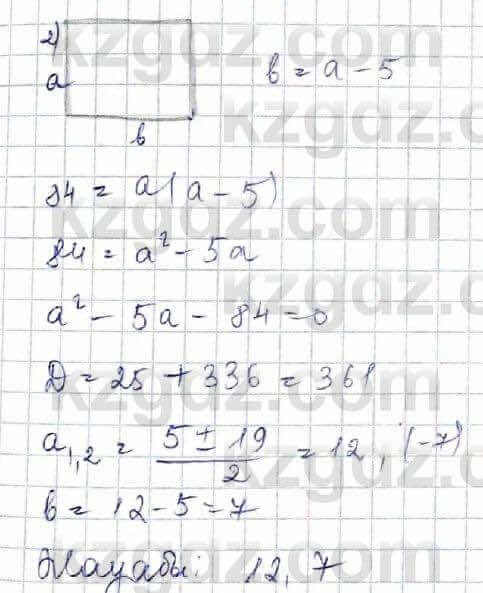 2)
a
b = a - 5
b
84 = a(a - 5)
84 = a² - 5a
a² - 5a - 84 = 0
D = 25 + 336 = 361
a₁,₂ = (5 ± 19)/2 = 12, (-7)
b = 12 - 5 = 7
Жауабы: 12, 7
kzgdz.com